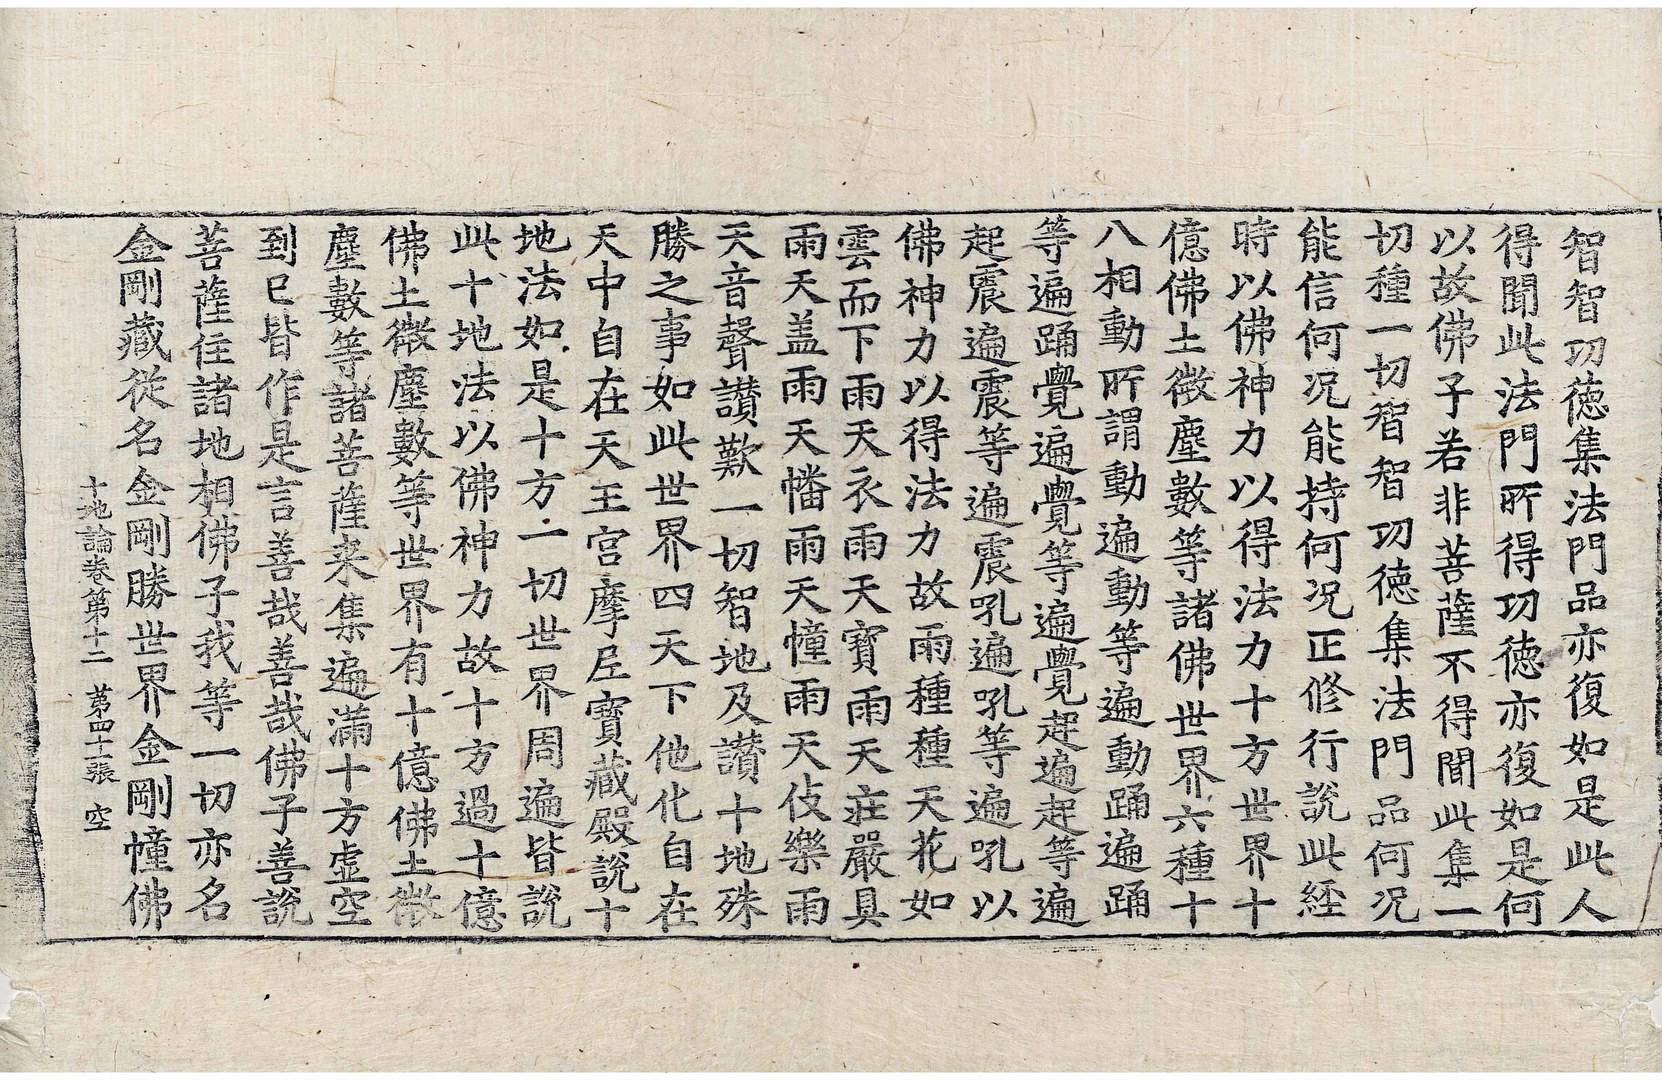 智智功徳集法門品亦復如是此人
得聞此法門所得功徳亦復如是何
以故佛子若非菩薩不得聞此集一
切種一切智智功徳集法門品何况
能信何况能持何况正修行說此經
時以佛神力以得法力十方世界十
億佛土微塵數等諸佛世界六種十
八相動所謂動遍動等遍動踊遍踊
等遍踊覺遍覺等遍覺起遍起等遍
起震遍震等遍震吼遍吼等遍吼以
佛神力以得法力故雨種種天花如
雲而下雨天衣雨天寶雨天莊嚴具
雨天盖雨天幡雨天幢雨天伎樂雨
天音聲讃歎一切智地及讃十地殊
勝之事如此世界四天下他化自在
天中自在天王宫摩尼寶藏殿說十
地法如是十方一切世界周遍皆說
此十地法以佛神力故十方過十億
佛土微塵數等世界有十億佛土微
塵數等諸菩薩来集遍滿十方虛空
到已皆作是言善哉善哉佛子善說
菩薩住諸地相佛子我等一切亦名
金剛藏從名金剛勝世界金剛幢佛
十地論卷第十二 第四十二張 空